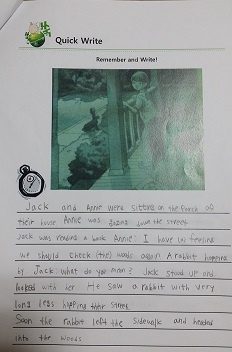 Quick Write
Remember and Write!
Jack and Annie were sitting on the porch of
their house Annie was going down the street
Jack was reading a book Annie: I have feeling
we should check the woods again A rabbit hopping
by Jack: What do you mean? Jack stood up and
looked with her He saw a rabbit with very
long legs hopping their street
Soon the rabbit left the sidewalk and headed
into the woods